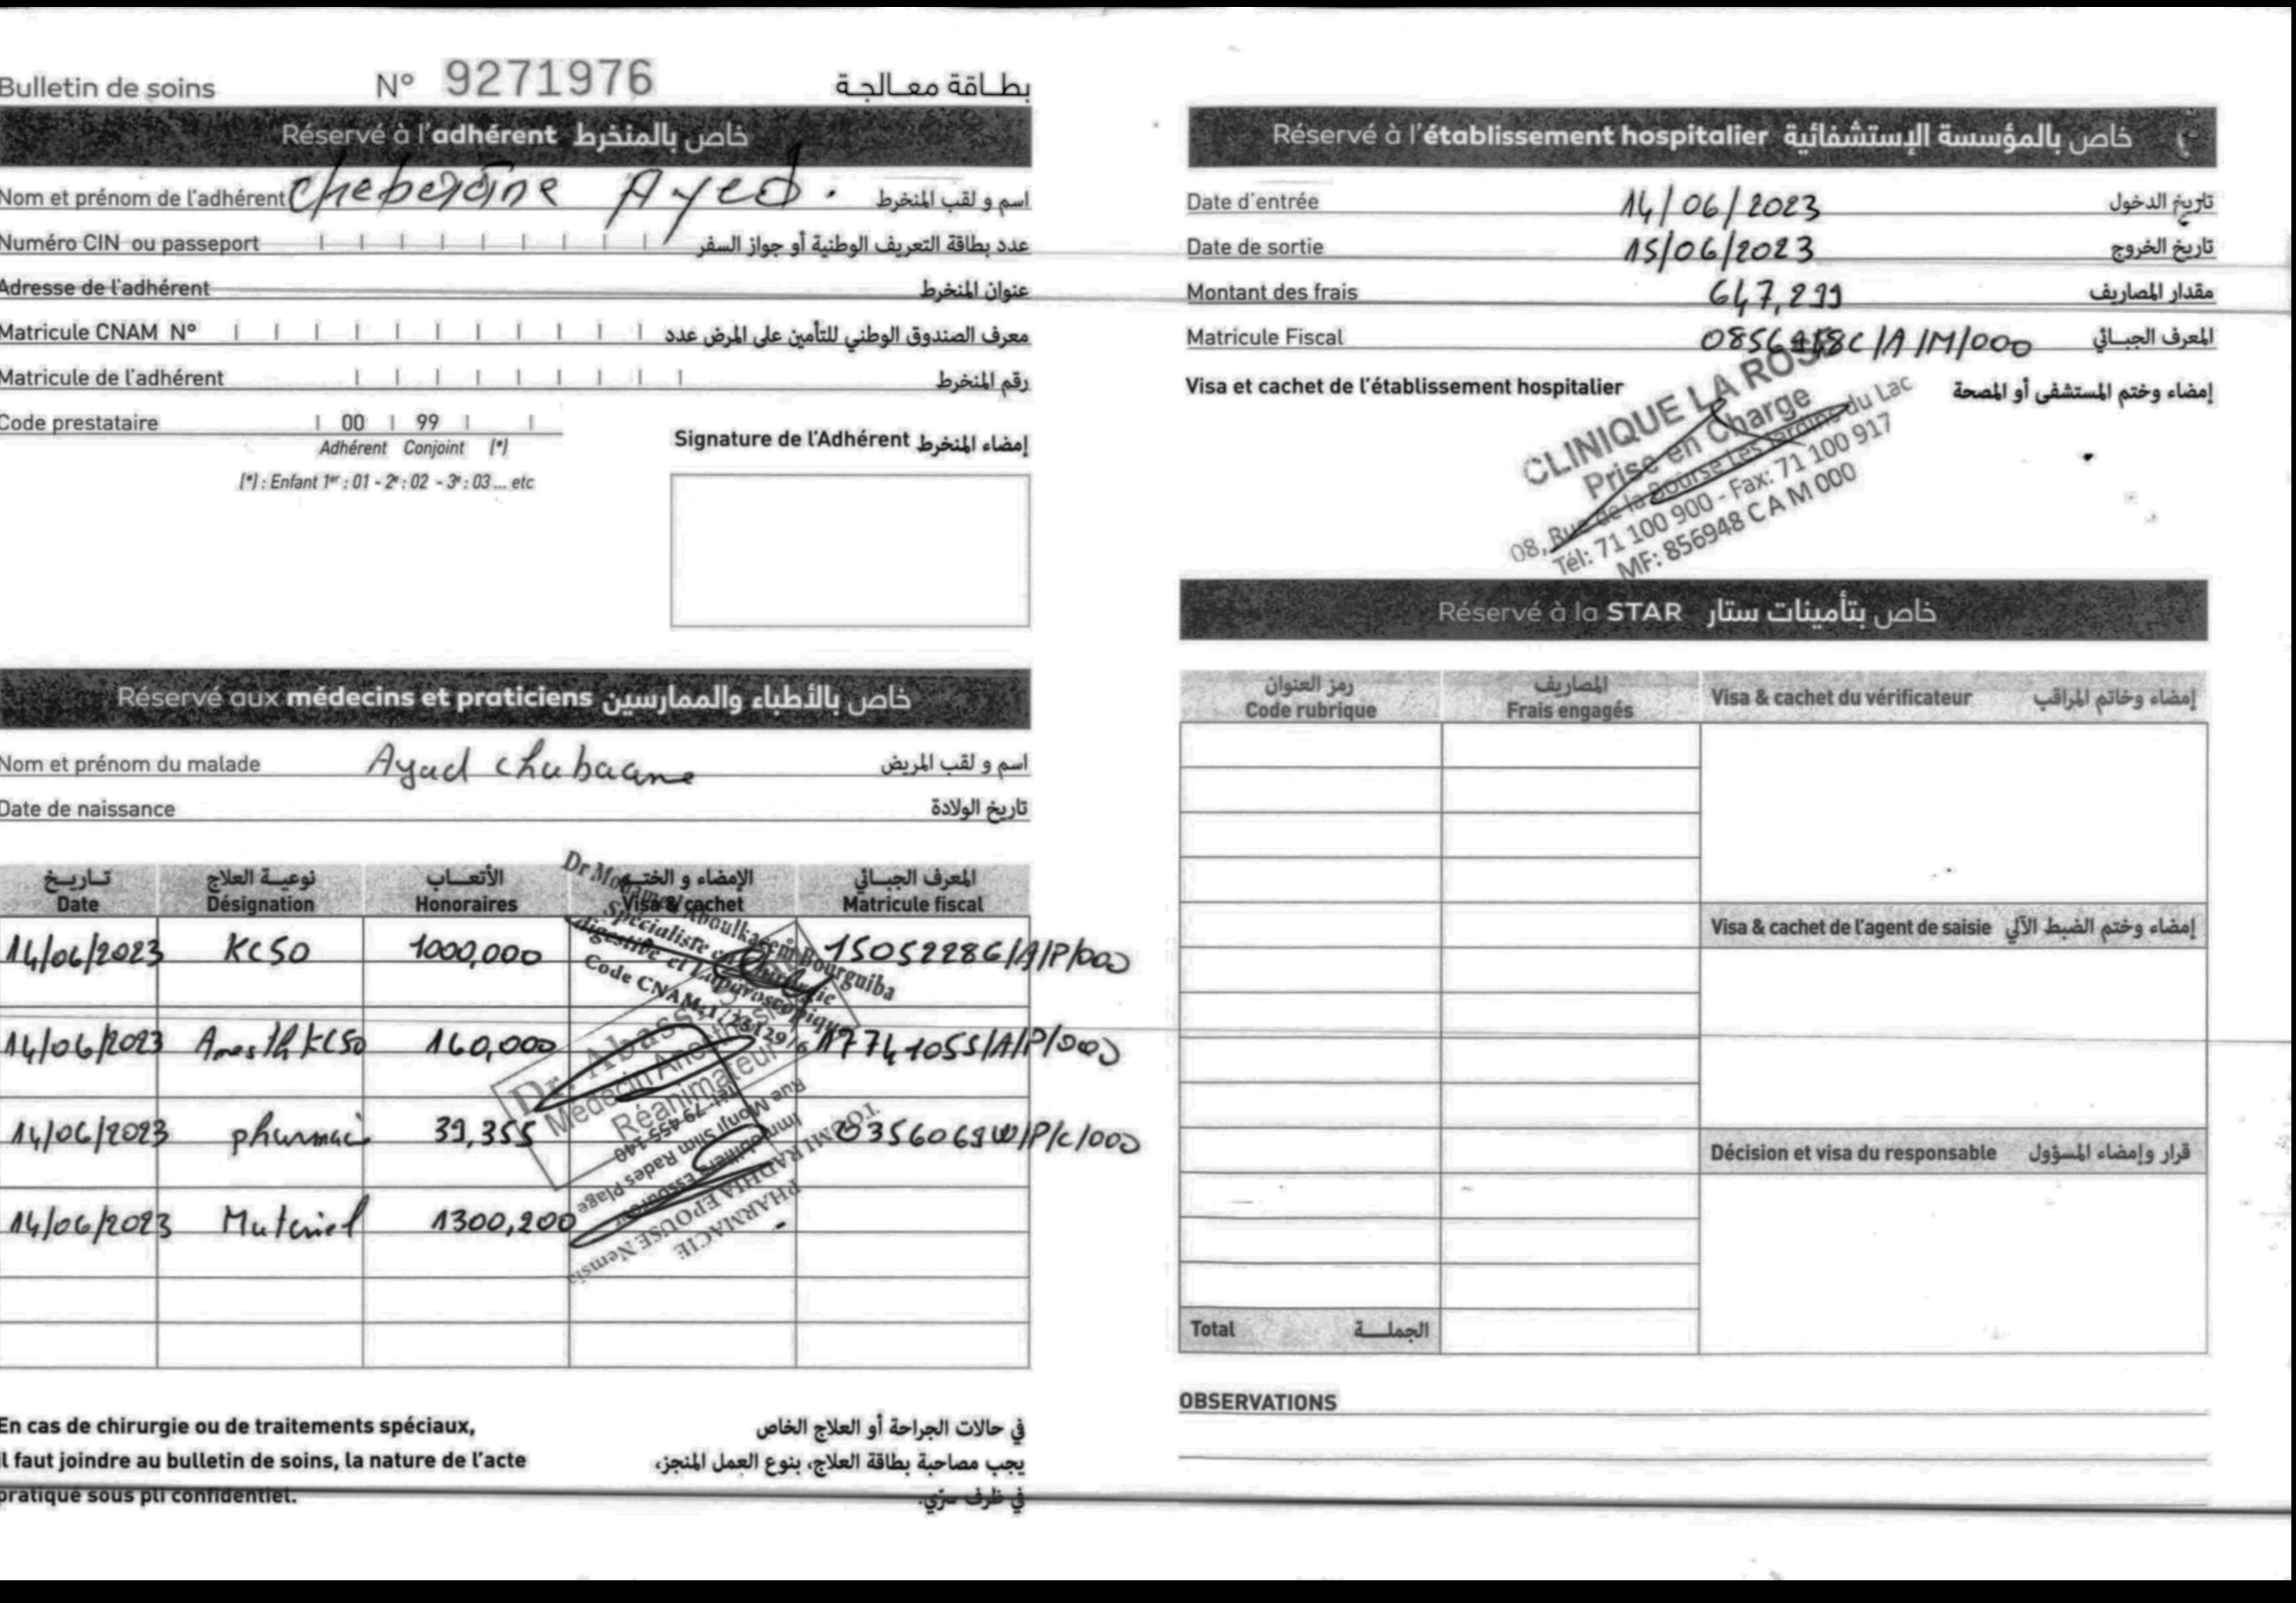 Bulletin de soins N° 9271976 بطاقة معالجة
Réservé à l'adhérent خاص بالمنخرط
Nom et prénom de l'adhérent Ayed . اسم و لقب المنخرط
Numéro CIN ou passeport عدد بطاقة التعريف الوطنية أو جواز السفر
Adresse de l'adhérent عنوان المنخرط
Matricule CNAM N° معرف الصندوق الوطني للتأمين على المرض عدد
Matricule de l'adhérent رقم المنخرط
Code prestataire 00 99
Adhérent Conjoint (*)
(*) : Enfant 1er : 01 - 2e : 02 - 3e : 03 ... etc
Signature de l'Adhérent إمضاء المنخرط
Réservé aux médecins et praticiens خاص بالأطباء والممارسين
Nom et prénom du malade Ayad chabaane اسم و لقب المريض
Date de naissance تاريخ الولادة
تاريخ نوعية العلاج الأتعاب الإمضاء و الختم المعرف الجبائي
Date Désignation Honoraires Visa & cachet Matricule fiscal
14/06/2023 KC50 1000,000 1505228G/A/P/000
14/06/2023 Anesth KC50 160,000 1774105S/A/P/000
14/06/2023 pharmaci 39,355 0356069W/P/C/000
14/06/2023 Materiel 1300,200
Dr Mohamed Aboulkasem Bourguiba
Spécialiste en Chirurgie
digestive et Laparoscopique
Code CNAM: 1/73129/6
Dr. Abass
Médecin Anesthésiste
Réanimateur
PHARMACIE
TOUMI RADHIA EPOUSE Nemsia
Rue Monji Slim Rades Plage
Tél: 79 455 140
En cas de chirurgie ou de traitements spéciaux,
il faut joindre au bulletin de soins, la nature de l'acte
pratiqué sous pli confidentiel.
في حالات الجراحة أو العلاج الخاص
يجب مصاحبة بطاقة العلاج، بنوع العمل المنجز،
في ظرف سرّي.
Réservé à l'établissement hospitalier خاص بالمؤسسة الإستشفائية
Date d'entrée 14/06/2023 تاريخ الدخول
Date de sortie 15/06/2023 تاريخ الخروج
Montant des frais 647,299 مقدار المصاريف
Matricule Fiscal 0856948C/A/M/000 المعرف الجبائي
Visa et cachet de l'établissement hospitalier إمضاء وختم المستشفى أو المصحة
CLINIQUE LA ROSE
Prise en Charge
08, Rue de la Bourse Les Jardins du Lac
Tél: 71 100 900 - Fax: 71 100 917
MF: 856948 C A M 000
Réservé à la STAR خاص بتأمينات ستار
رمز العنوان المصاريف
Code rubrique Frais engagés Visa & cachet du vérificateur إمضاء وخاتم المراقب
Visa & cachet de l'agent de saisie إمضاء وختم الضبط الآلي
Décision et visa du responsable قرار وإمضاء المسؤول
Total الجملة
OBSERVATIONS